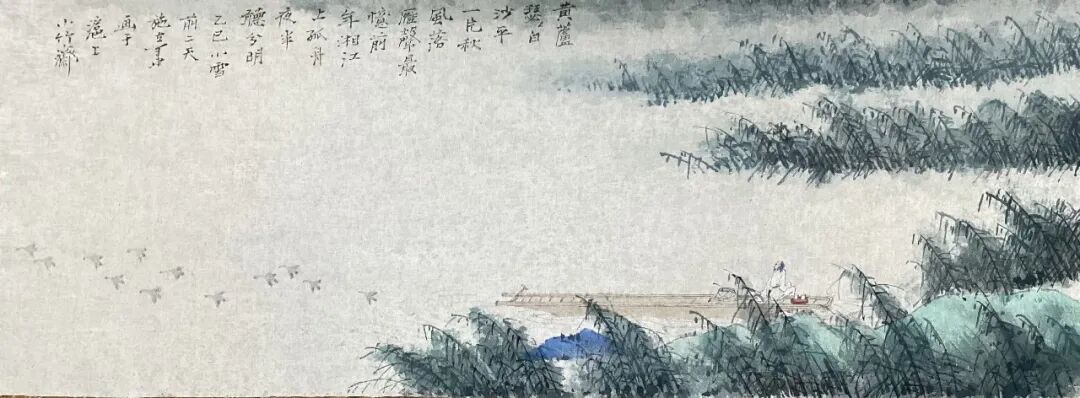 黄蘆
瑟白
沙平
一片秋
風落
雁聲最
憶前
年湘江
上孤舟
夜半
聽分明
乙巳小雪
前二天
施
画于
滬上
小竹齋